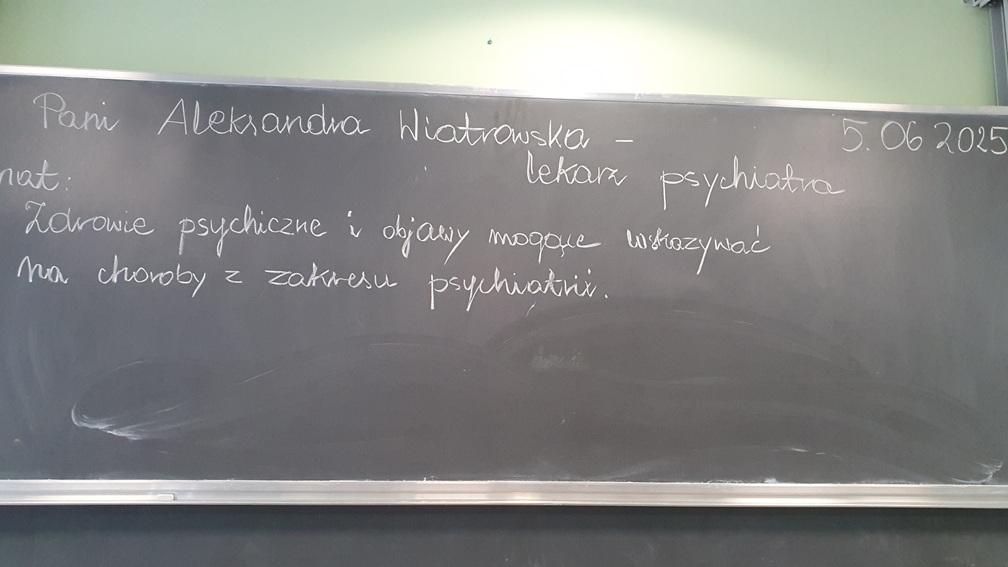 Pani Aleksandra Wiatrowska - 5.06 2025
lekarz psychiatra
mat:
Zdrowie psychiczne i objawy mogące wskazywać
na choroby z zakresu psychiatrii.